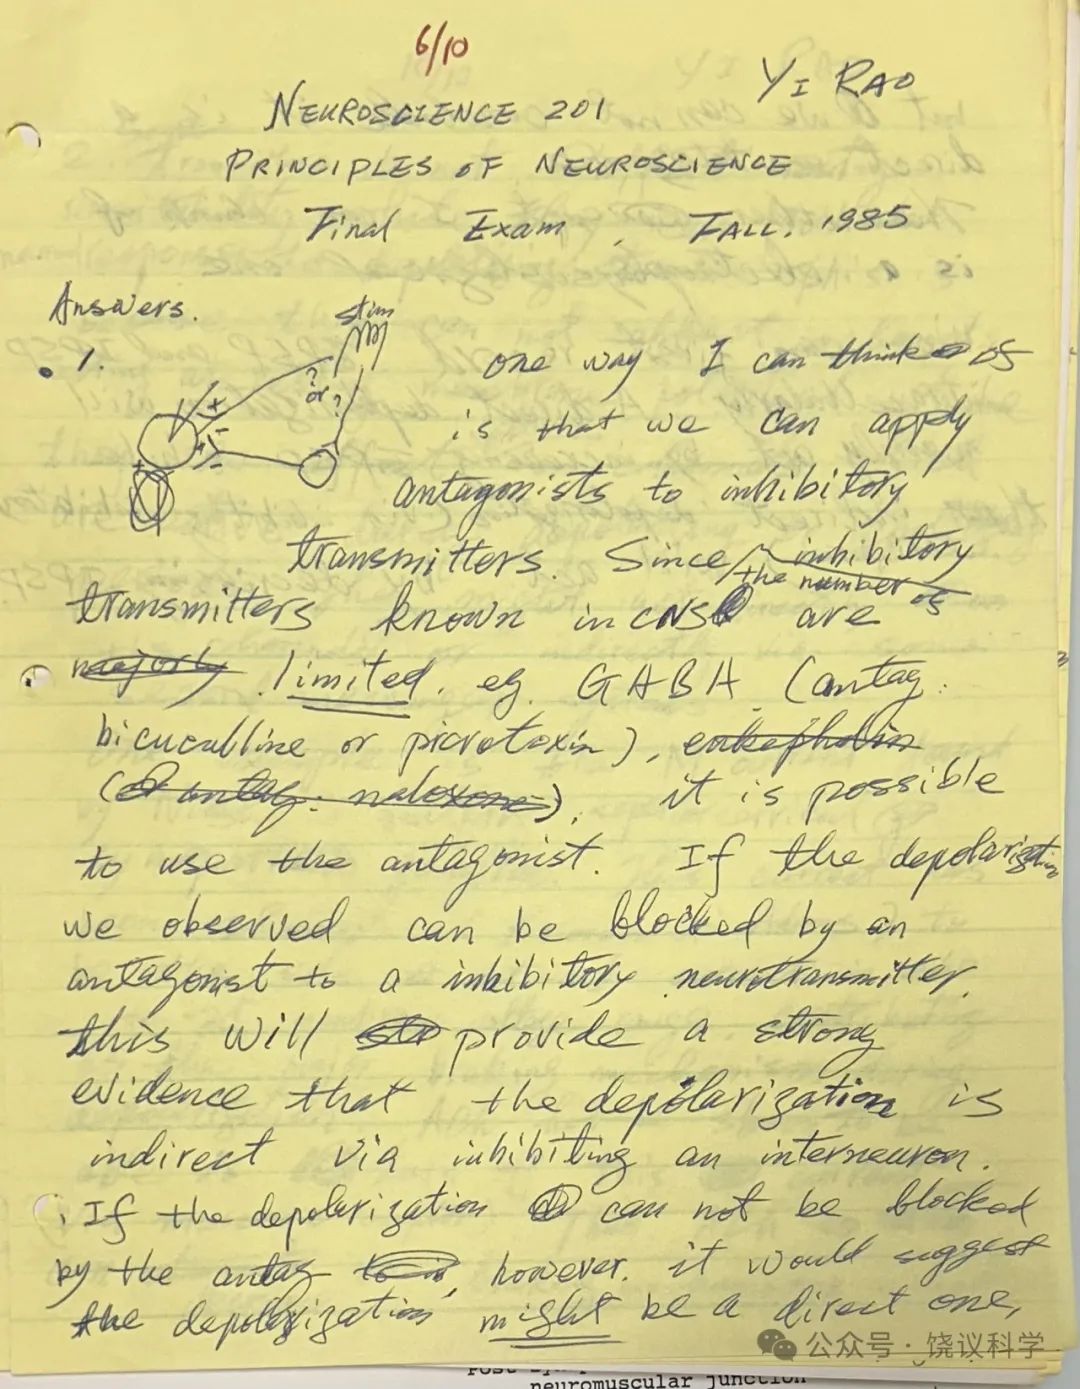 6/10
YI RAO
NEUROSCIENCE 201
PRINCIPLES OF NEUROSCIENCE
Final Exam, FALL, 1985
Answers.
stim
1.
? or ?
one way I can think of
is that we can apply
antagonists to inhibitory
transmitters. Since inhibitory
the number of
transmitters known in CNS are
majorly limited, eg. GABA (antag.
bicuculline or picrotoxin), enkephalin
(antag: naloxone), it is possible
to use the antagonist. If the depolarization
we observed can be blocked by an
antagonist to a inhibitory neurotransmitter,
this will provide a strong
evidence that the depolarization is
indirect via inhibiting an interneuron.
If the depolarization can not be blocked
by the antag, however, it would suggest
the depolarization might be a direct one,
公众号 · 饶议科学
neuromuscular junction